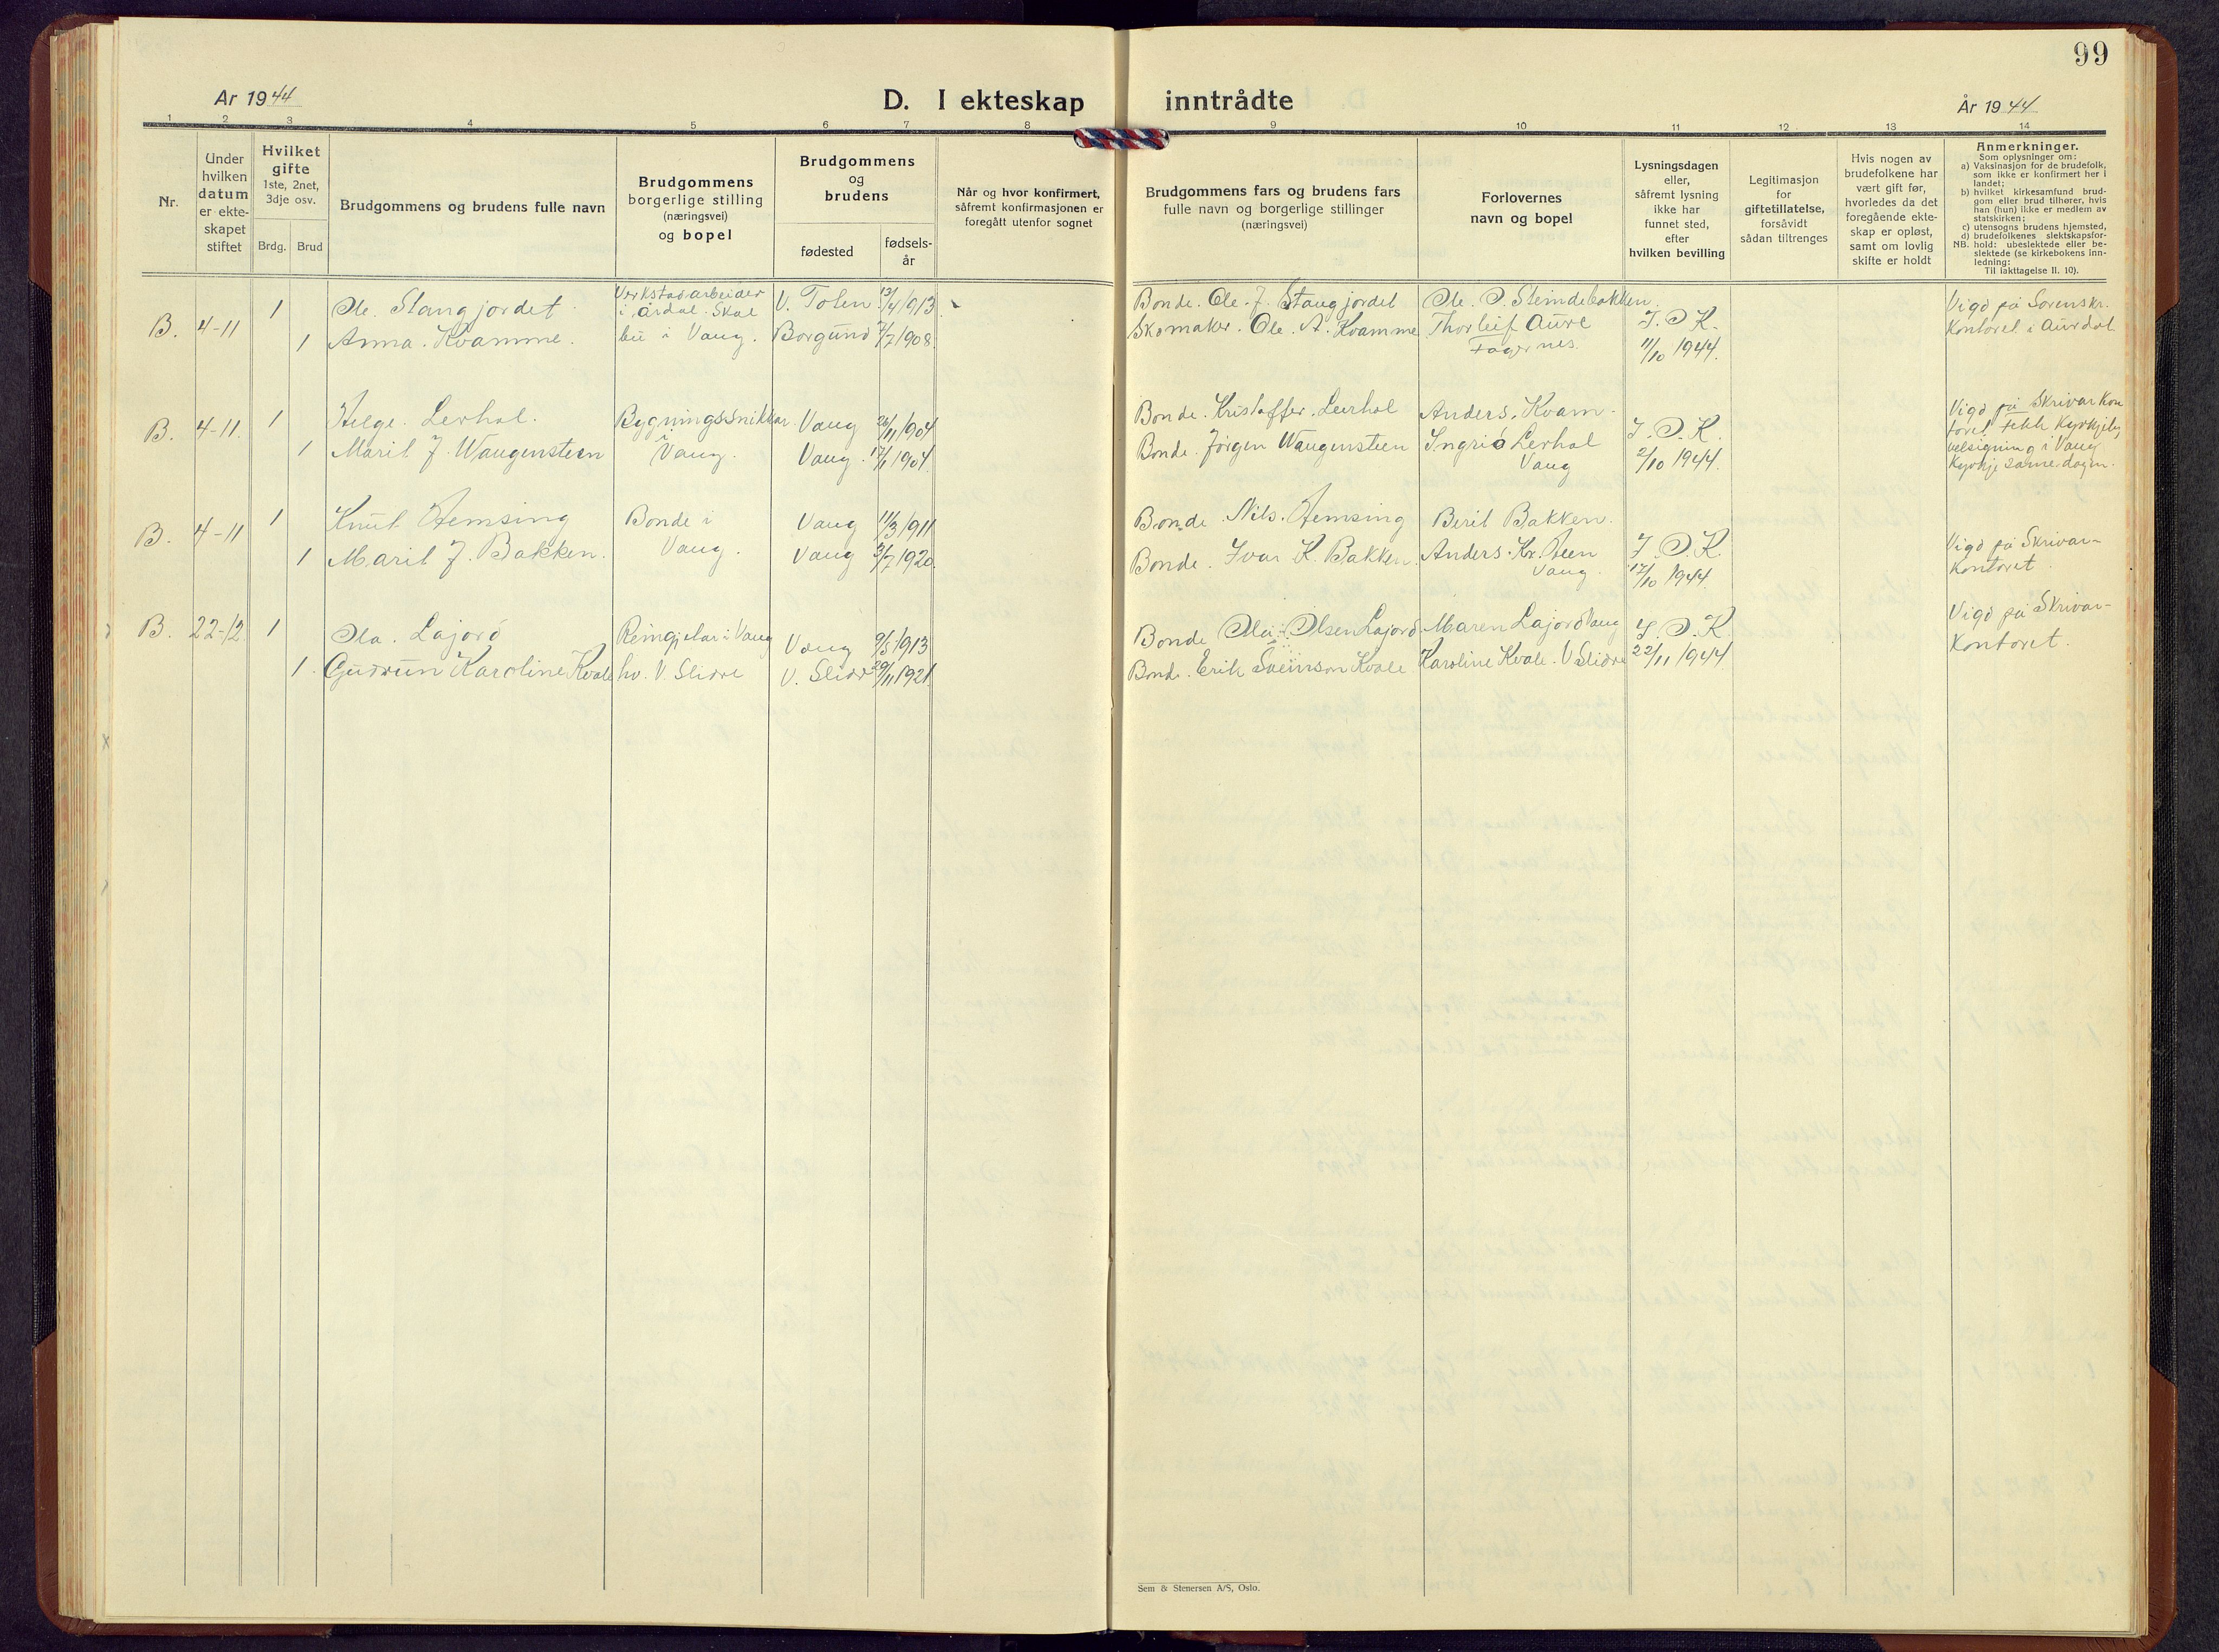 99
År 1944
D. I ekteskap inntrådte
År 1944
1 2 3 4 5 6 7 8 9 10 11 12 13 14
Nr.
Under hvilken datum er ekteskapet stiftet
Hvilket gifte
1ste, 2net, 3dje osv.
Brdg. Brud
Brudgommens og brudens fulle navn
Brudgommens borgerlige stilling (næringsvei) og bopel
Brudgommens og brudens
fødested
fødselsår
Når og hvor konfirmert, såfremt konfirmasjonen er foregått utenfor sognet
Brudgommens fars og brudens fars fulle navn og borgerlige stillinger (næringsvei)
Forlovernes navn og bopel
Lysningsdagen eller, såfremt lysning ikke har funnet sted, efter hvilken bevilling
Legitimasjon for giftetillatelse, forsåvidt sådan tiltrenges
Hvis nogen av brudefolkene har vært gift før, hvorledes da det foregående ekteskap er opløst, samt om lovlig skifte er holdt
Anmerkninger.
Som oplysninger om:
a) Vaksinasjon for de brudefolk, som ikke er konfirmert her i landet;
b) hvilket kirkesamfund brudgom eller brud tilhører, hvis han (hun) ikke er medlem av statskirken;
c) utensogns brudens hjemsted,
d) brudefolkenes slektskapsforhold: ubeslektede eller beslektede (se kirkebokens innledning:
NB.
Til iakttagelse II. 10).
B. 4-11 1 Ole. Stangjordet Verkstadarbeider i Årdal. Skal V. Toten 13/4 1913 Bonde. Ole. J. Stangjordet Ole. O. Steindebakken. Vigd på Sorenskr.
1 Anna. Kvamme. bu i Vang. Borgund 7/7 1908 Skomaker. Ole. A. Kvamme Thorleif Aure Fagernes. J.O.K. 11/10 1944. Kontoret i Aurdal
B. 4-11. 1 Helge. Lerhol. Bygningssnikkar i Vang 26/11 1904 Bonde. Kristoffer. Leirhol Anders. Kvam. Vigd på Skrivarkontoret. Fekk Kyrkjeleg
1 Marit J. Wangensteen Vang. Vang. 17/1 1904. Bonde. Jørgen Wangensteen Ingrid Lerhol Vang J.O.K. 2/10 1944. velsigning i Vang Kyrkje same dagen.
B. 4-11 1 Knut Hemsing Bonde i Vang 11/3 1911 Bonde. Nils. Hemsing Berit Bakken.
1 Marit J. Bakken. Vang. Vang 3/7 1920. Bonde. Ivar K. Bakken. Anders. Kr. Steen Vang. J.O.K. 17/10 1944. Vigd på Skrivarkontoret.
B. 22-12 1 Ola. Lajord Reingjetar i Vang Vang 9/5 1913 Bonde Ola Olsen Lajord Maren Lajord Vang J.O.K. Vigd på Skrivar-
1. Gudrun Karoline Kvale hv. V. Slidre V. Slidre 29/11 1921. Bond. Erik Sveinson Kvale Karoline Kvale. V Slidre 22/11 1944 Kontoret.
Sem & Stenersen A/S, Oslo.